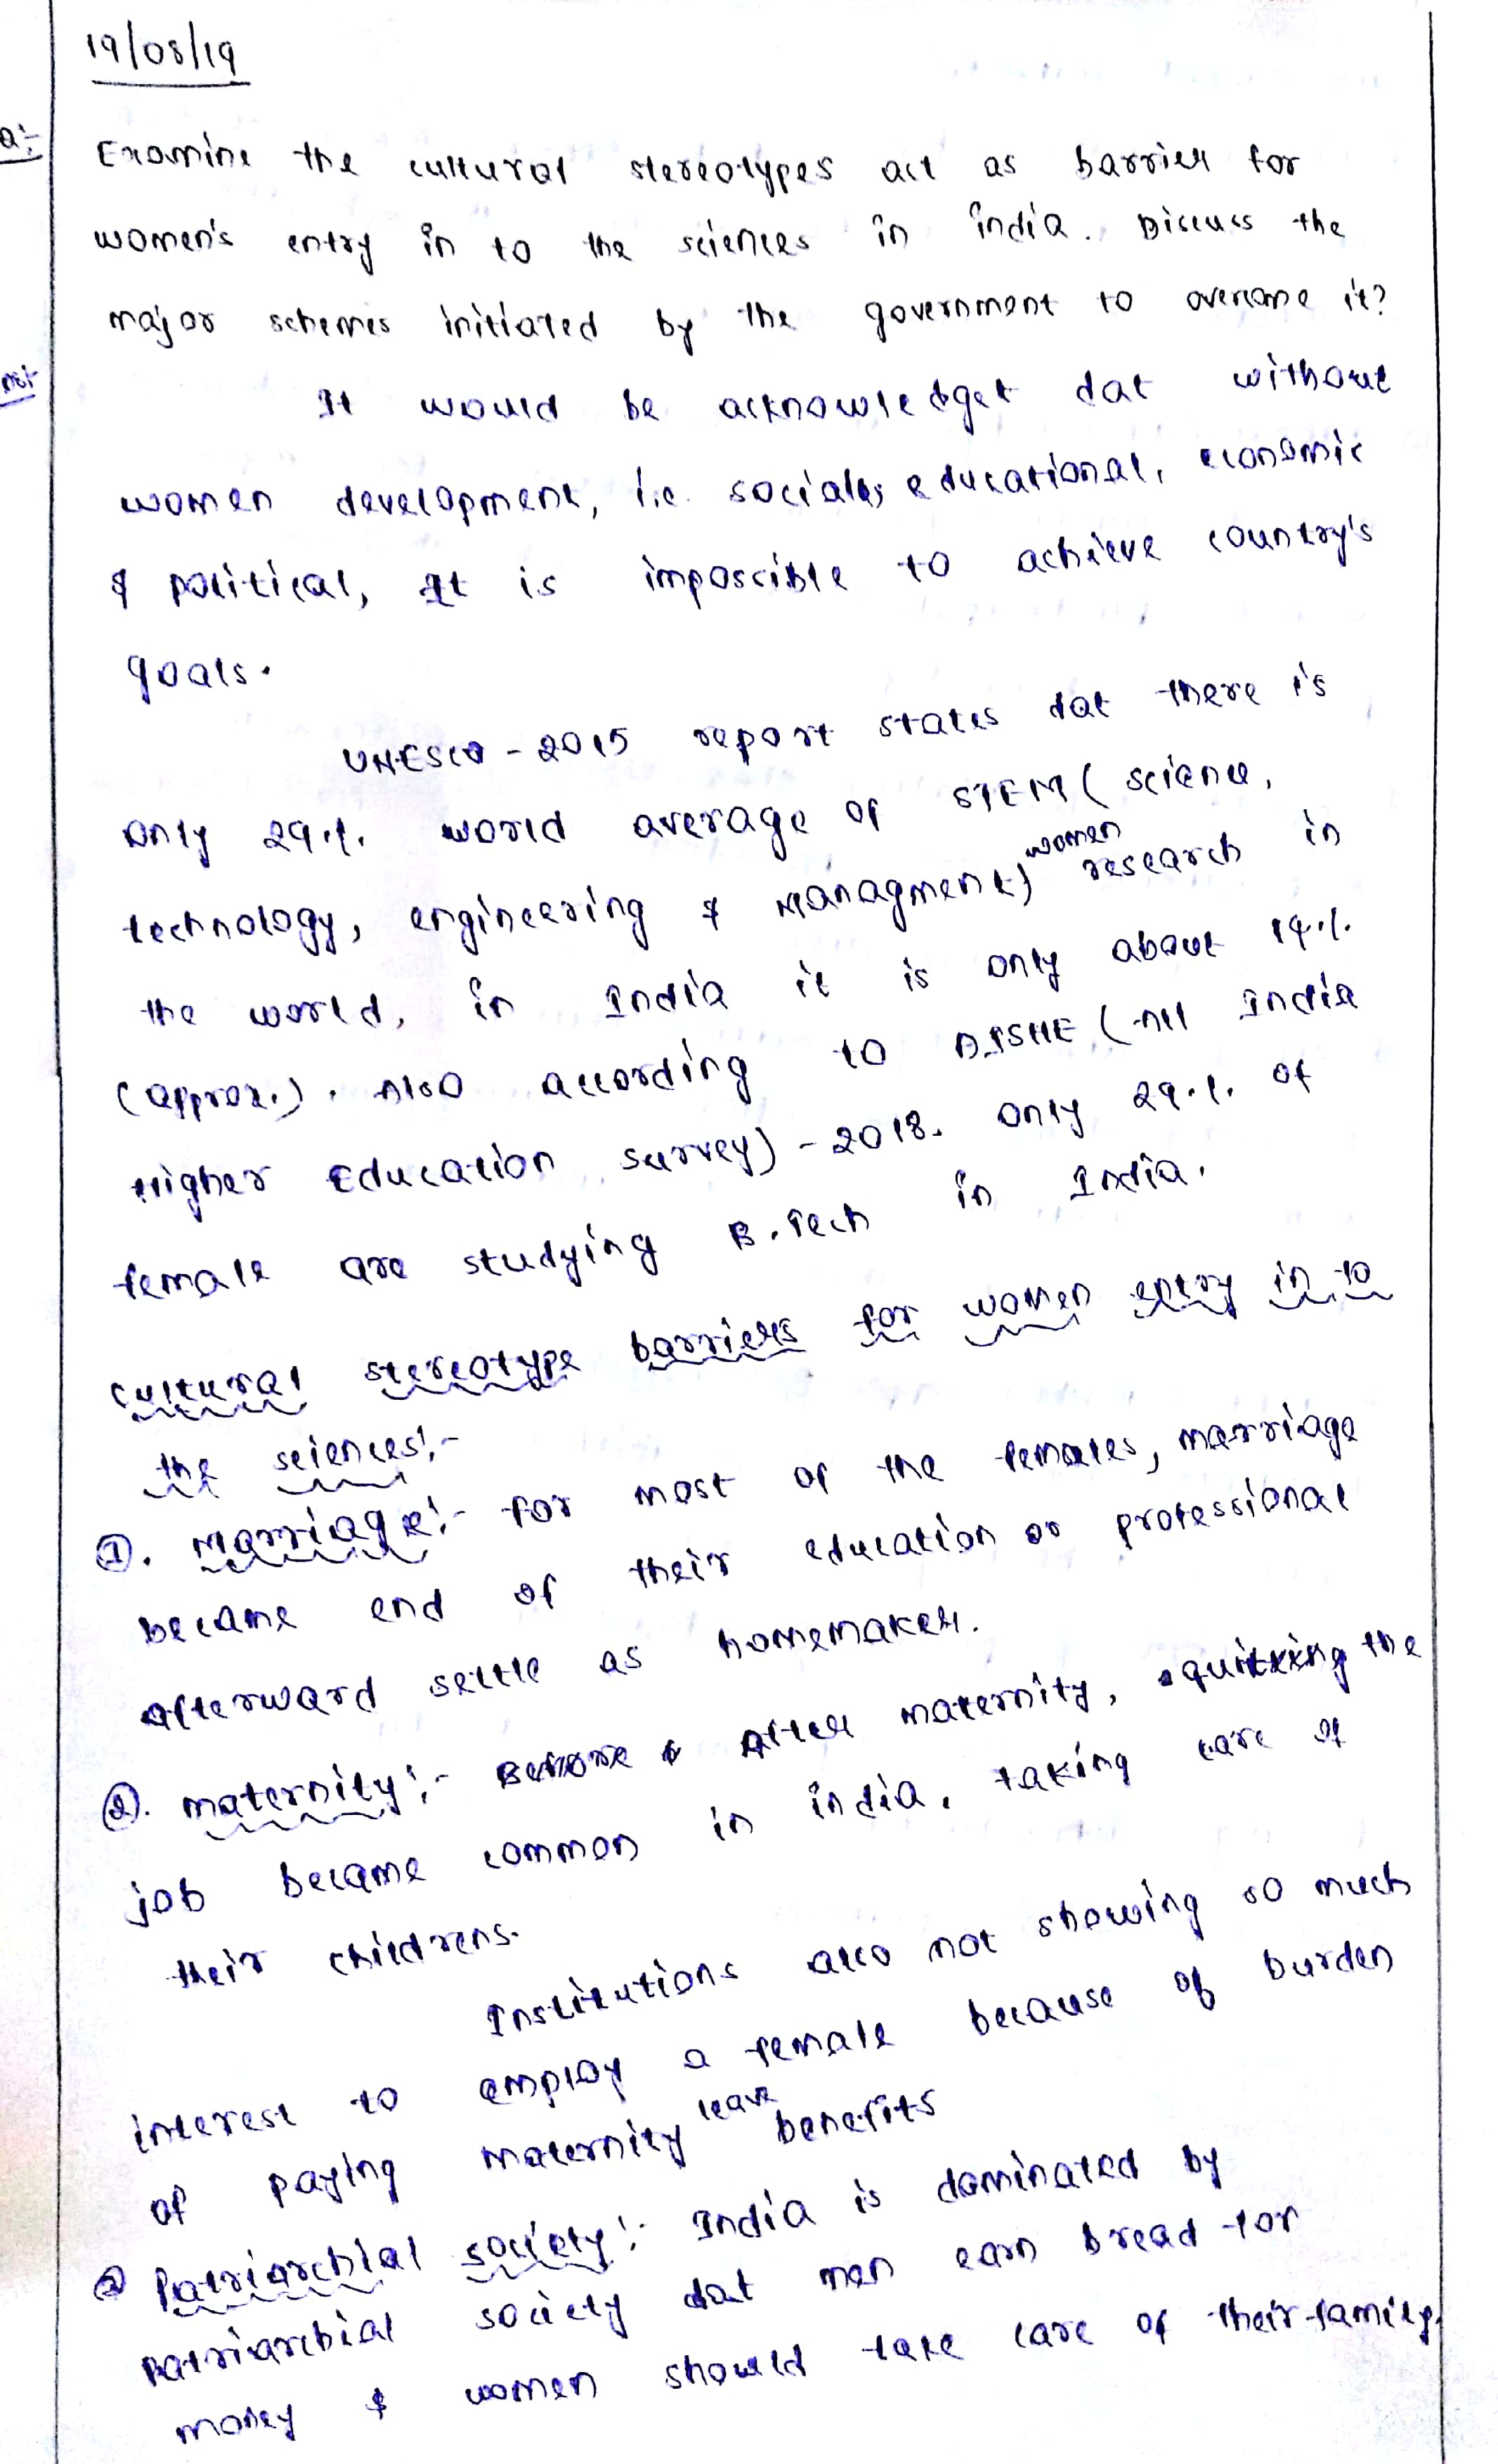 19/08/19
Q:- Examine the cultural stereotypes act as barrier for
women's entry in to the sciences in india. Discuss the
major schemes initiated by the government to overcome it?
Ans:- It would be acknowledget dat without
women development, i.e. social, educational, economic
& political, It is impossible to achieve country's
goals.
UNESCO - 2015 report states dat there is
only 29.%. world average of STEM (science,
technology, engineering & Managment) women research in
the world, in India it is only about 14.%.
(approx.). Also according to AISHE (All India
Higher Education survey) - 2018. only 29.%. of
female are studying B.Tech in India.
Cultural stereotype barriers for women entry in to
the sciences:-
①. Marriage:- For most of the females, marriage
became end of their education or professional
afterward settle as homemaker.
②. maternity:- Before & After maternity, quitting the
job became common in india, taking care of
their childrens.
Institutions also not showing so much
interest to employ a female because of burden
of paying maternity leave benefits
③ Patriarchial society:- India is dominated by
patriarchial society dat men earn bread for
money & women should take care of their family.